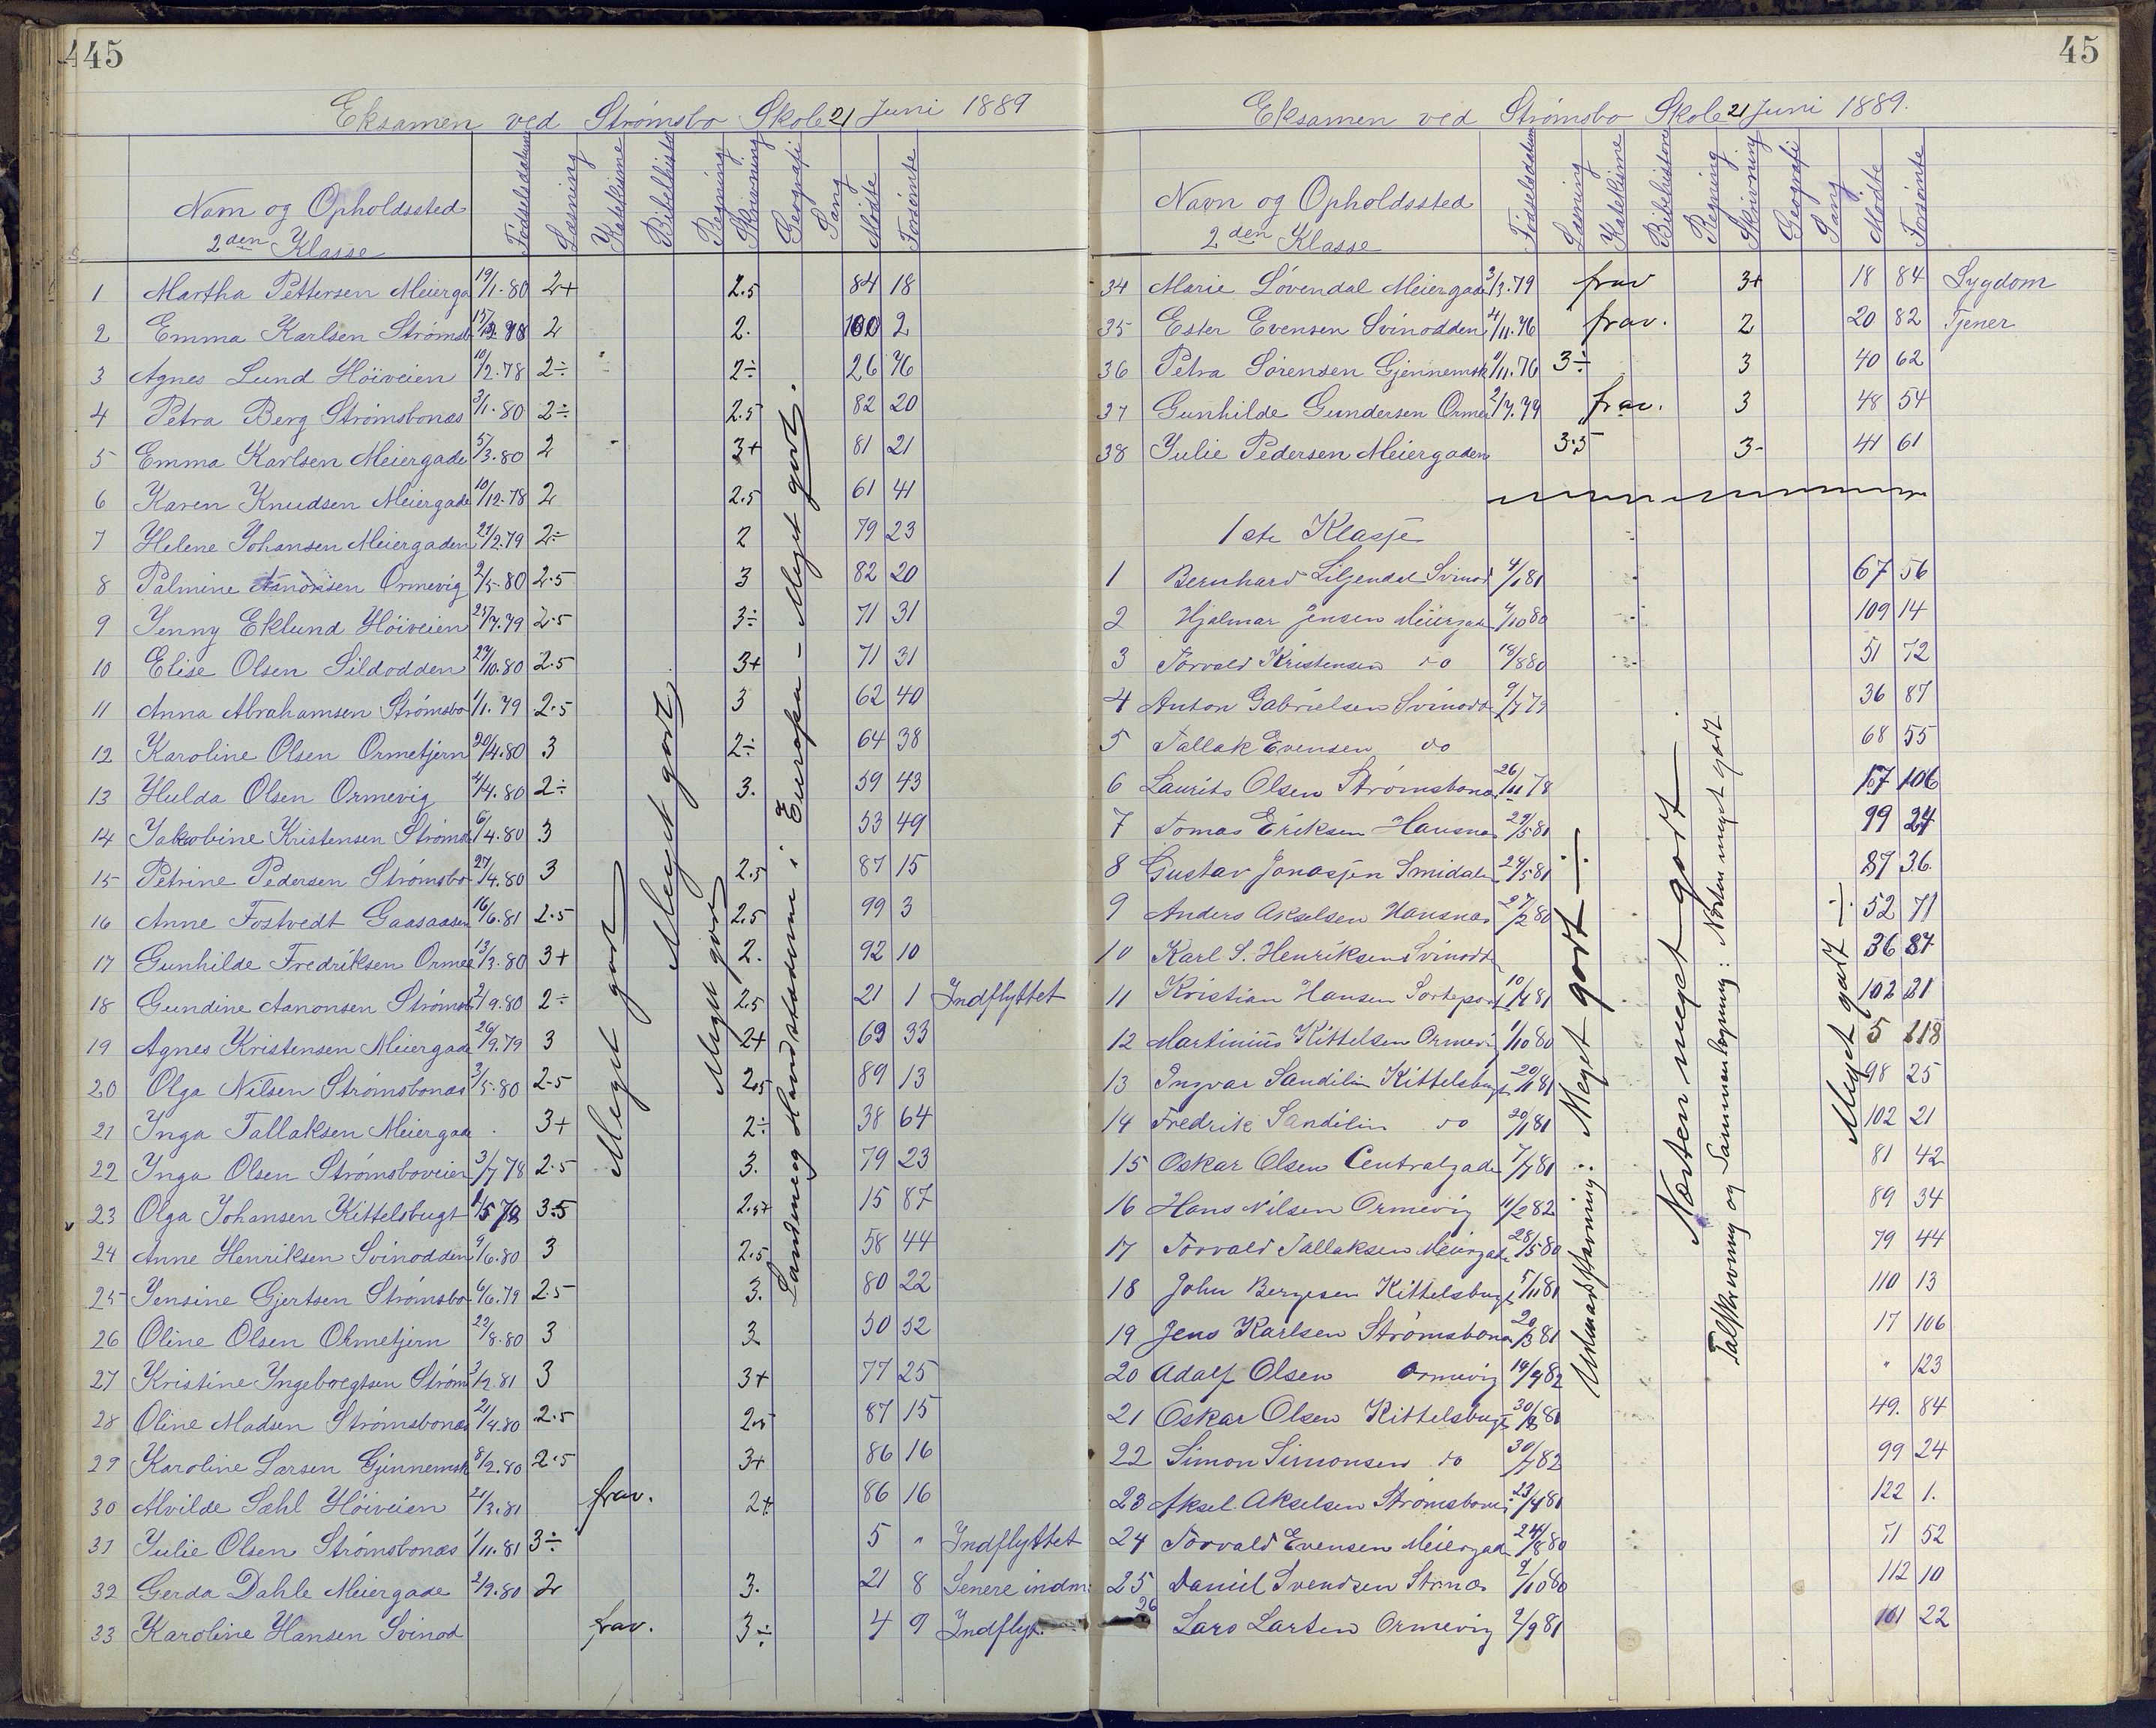 445
Eksamen ved Strømsbo Skole 21 Juni 1889
Navn og Opholdssted
2den Klasse
Fødselsdatum
Læsning
Katekisme
Bibelhistorie
Regning
Skrivning
Geografi
Sang
Mødte
Forsømte
1 Martha Pettersen Meierga 19/1.80 2+ 2.5 84 18
2 Emma Karlsen Strømsb 2 2. 100 2
3 Agnes Lund Höiveien 10/2.78 2÷ 2÷ 26 76
4 Petra Berg Strømsbonæs 3/1.80 2÷ 2.5 82 20
5 Emma Karlsen Meiergade 5/3.80 2 3+ 81 21
6 Karen Knudsen Meiergade 10/12.78 2 2.5 61 41
7 Helene Johansen Meiergaden 21/2.79 2÷ 2 79 23
8 Palmine Aanonsen Ormevig 9/5.80 2.5 3 82 20
9 Jenny Eklund Höiveien 25/7.79 2.5 3÷ 71 31
10 Elise Olsen Sildodden 29/10.80 2.5 3+ 71 31
11 Anna Abrahamsen Strømsbo 1/1.79 2.5 3 62 40
12 Karoline Olsen Ormetjern 30/4.80 3 2÷ 64 38
13 Hulda Olsen Ormevig 4/4.80 2÷ 3. 59 43
14 Jakobine Kristensen Strøms 6/4.80 3 53 49
15 Petrine Pedersen Strømsbo 27/4.80 3 2.5 87 15
16 Anne Fostvedt Gaasaasen 16/6.81 2.5 2.5 99 3
17 Gunhilde Fredriksen Orme 13/3.80 3+ 2. 92 10
18 Gundine Aanonsen Strømsb 2/9.80 2÷ 2.5 21 1 Indflyttet
19 Agnes Kristensen Meiergade 26/9.79 3 2+ 69 33
20 Olga Nilsen Strømsbonæs 3/5.80 2.5 2.5 89 13
21 Inga Tallaksen Meiergade 3+ 2÷ 38 64
22 Inga Olsen Strømsboveien 3/7 78 2.5 3. 79 23
23 Olga Johansen Kittelsbugt 3.5 2.5+ 15 87
24 Anne Henriksen Svinodden 9/6.80 3 2.5 58 44
25 Jensine Gjertsen Strømsbo 6/6.79 2.5 3. 80 22
26 Oline Olsen Ormetjern 22/8.80 3 3 50 52
27 Kristine Ingebregtsen Strøm 3/2.81 3 3+ 77 25
28 Oline Madsen Strømsbonæs 21/4.80 2.5 2.5 87 15
29 Karoline Larsen Gjennemsk 8/2.80 2.5 3+ 86 16
30 Alvilde Sæhl Höiveien 21/3.81 frav. 2+ 86 16
31 Julie Olsen Strømsbonæs 1/11.81 3÷ 5 " Indflyttet
32 Gerda Dahle Meiergade 2/9.80 2 3. 21 8 Senere indm.
33 Karoline Hansen Svinod frav. 3÷ 4 9 Indflyt.
Meget godt
Meget godt
Meget godt
Landene og Hovedstæderne i Europa – Meget godt.
45
Eksamen ved Strømsbo Skole 21 Juni 1889.
Navn og Opholdssted
2den Klasse
Fødselsdatum
Læsning
Katekisme
Bibelhistorie
Regning
Skrivning
Geografi
Sang
Mødte
Forsømte
34 Marie Løvendal Meiergade 3/3.79 frav 3+ 18 84 Sygdom
35 Ester Evensen Svinodden 4/11.76 frav. 2 20 82 Tjener
36 Petra Sørensen Gjennemsk 9/11.76 3÷ 3 40 62
37 Gunhilde Gundersen Orme 2/7.79 frav. 3 48 54
38 Julie Pedersen Meiergaden 3.5 3- 41 61
1ste Klasse
1 Bernhard Liljendal Svinod 4/1 81 67 56
2 Hjalmar Jensen Meiergade 4/10 80 109 14
3 Torvald Kristensen do 18/8 80 51 72
4 Anton Gabrielsen Svinodd 9/7 79 36 87
5 Tallak Evensen do 68 55
6 Laurits Olsen Strømsbonæs 26/11 78 17 106
7 Tomas Eriksen Hausnæs 29/5 81 99 24
8 Gustav Jonassen Smidalen 24/5 81 87 36
9 Anders Akselsen Hausnæs 27/2 80 52 71
10 Karl S. Henriksen Svinodd 36 87
11 Kristian Hansen Sorteport 10/4 81 102 21
12 Martinius Kittelsen Ormevig 1/10 80 5 118
13 Ingvar Sandilin Kittelsbugt 20/1 81 98 25
14 Fredrik Sandilin do 20/1 81 102 21
15 Oskar Olsen Centralgade 7/7 81 81 42
16 Hans Nilsen Ormevig 11/2 82 89 34
17 Torvald Tallaksen Meiergade 28/5 80 79 44
18 John Bergesen Kittelsbugt 5/11 81 110 13
19 Jens Karlsen Strømsbonæs 20/3 81 17 106
20 Adolf Olsen Ormevig 19/9 82 " 123
21 Oskar Olsen Kittelsbugt 49. 84
22 Simon Simonsen do 30/7 82 99 24
23 Aksel Akselsen Strømsbonæs 23/4 81 122 1.
24 Torvald Evensen Meiergade 24/8 80 71 52
25 Daniel Svendsen Strnæs 9/10 80 112 10
26 Lars Larsen Ormevig 2/9 81 101 22
Udenadstavning: Meget godt ÷
Næsten meget godt
Talskrivning og Sammenlægning: Næsten meget godt
Meget godt ÷